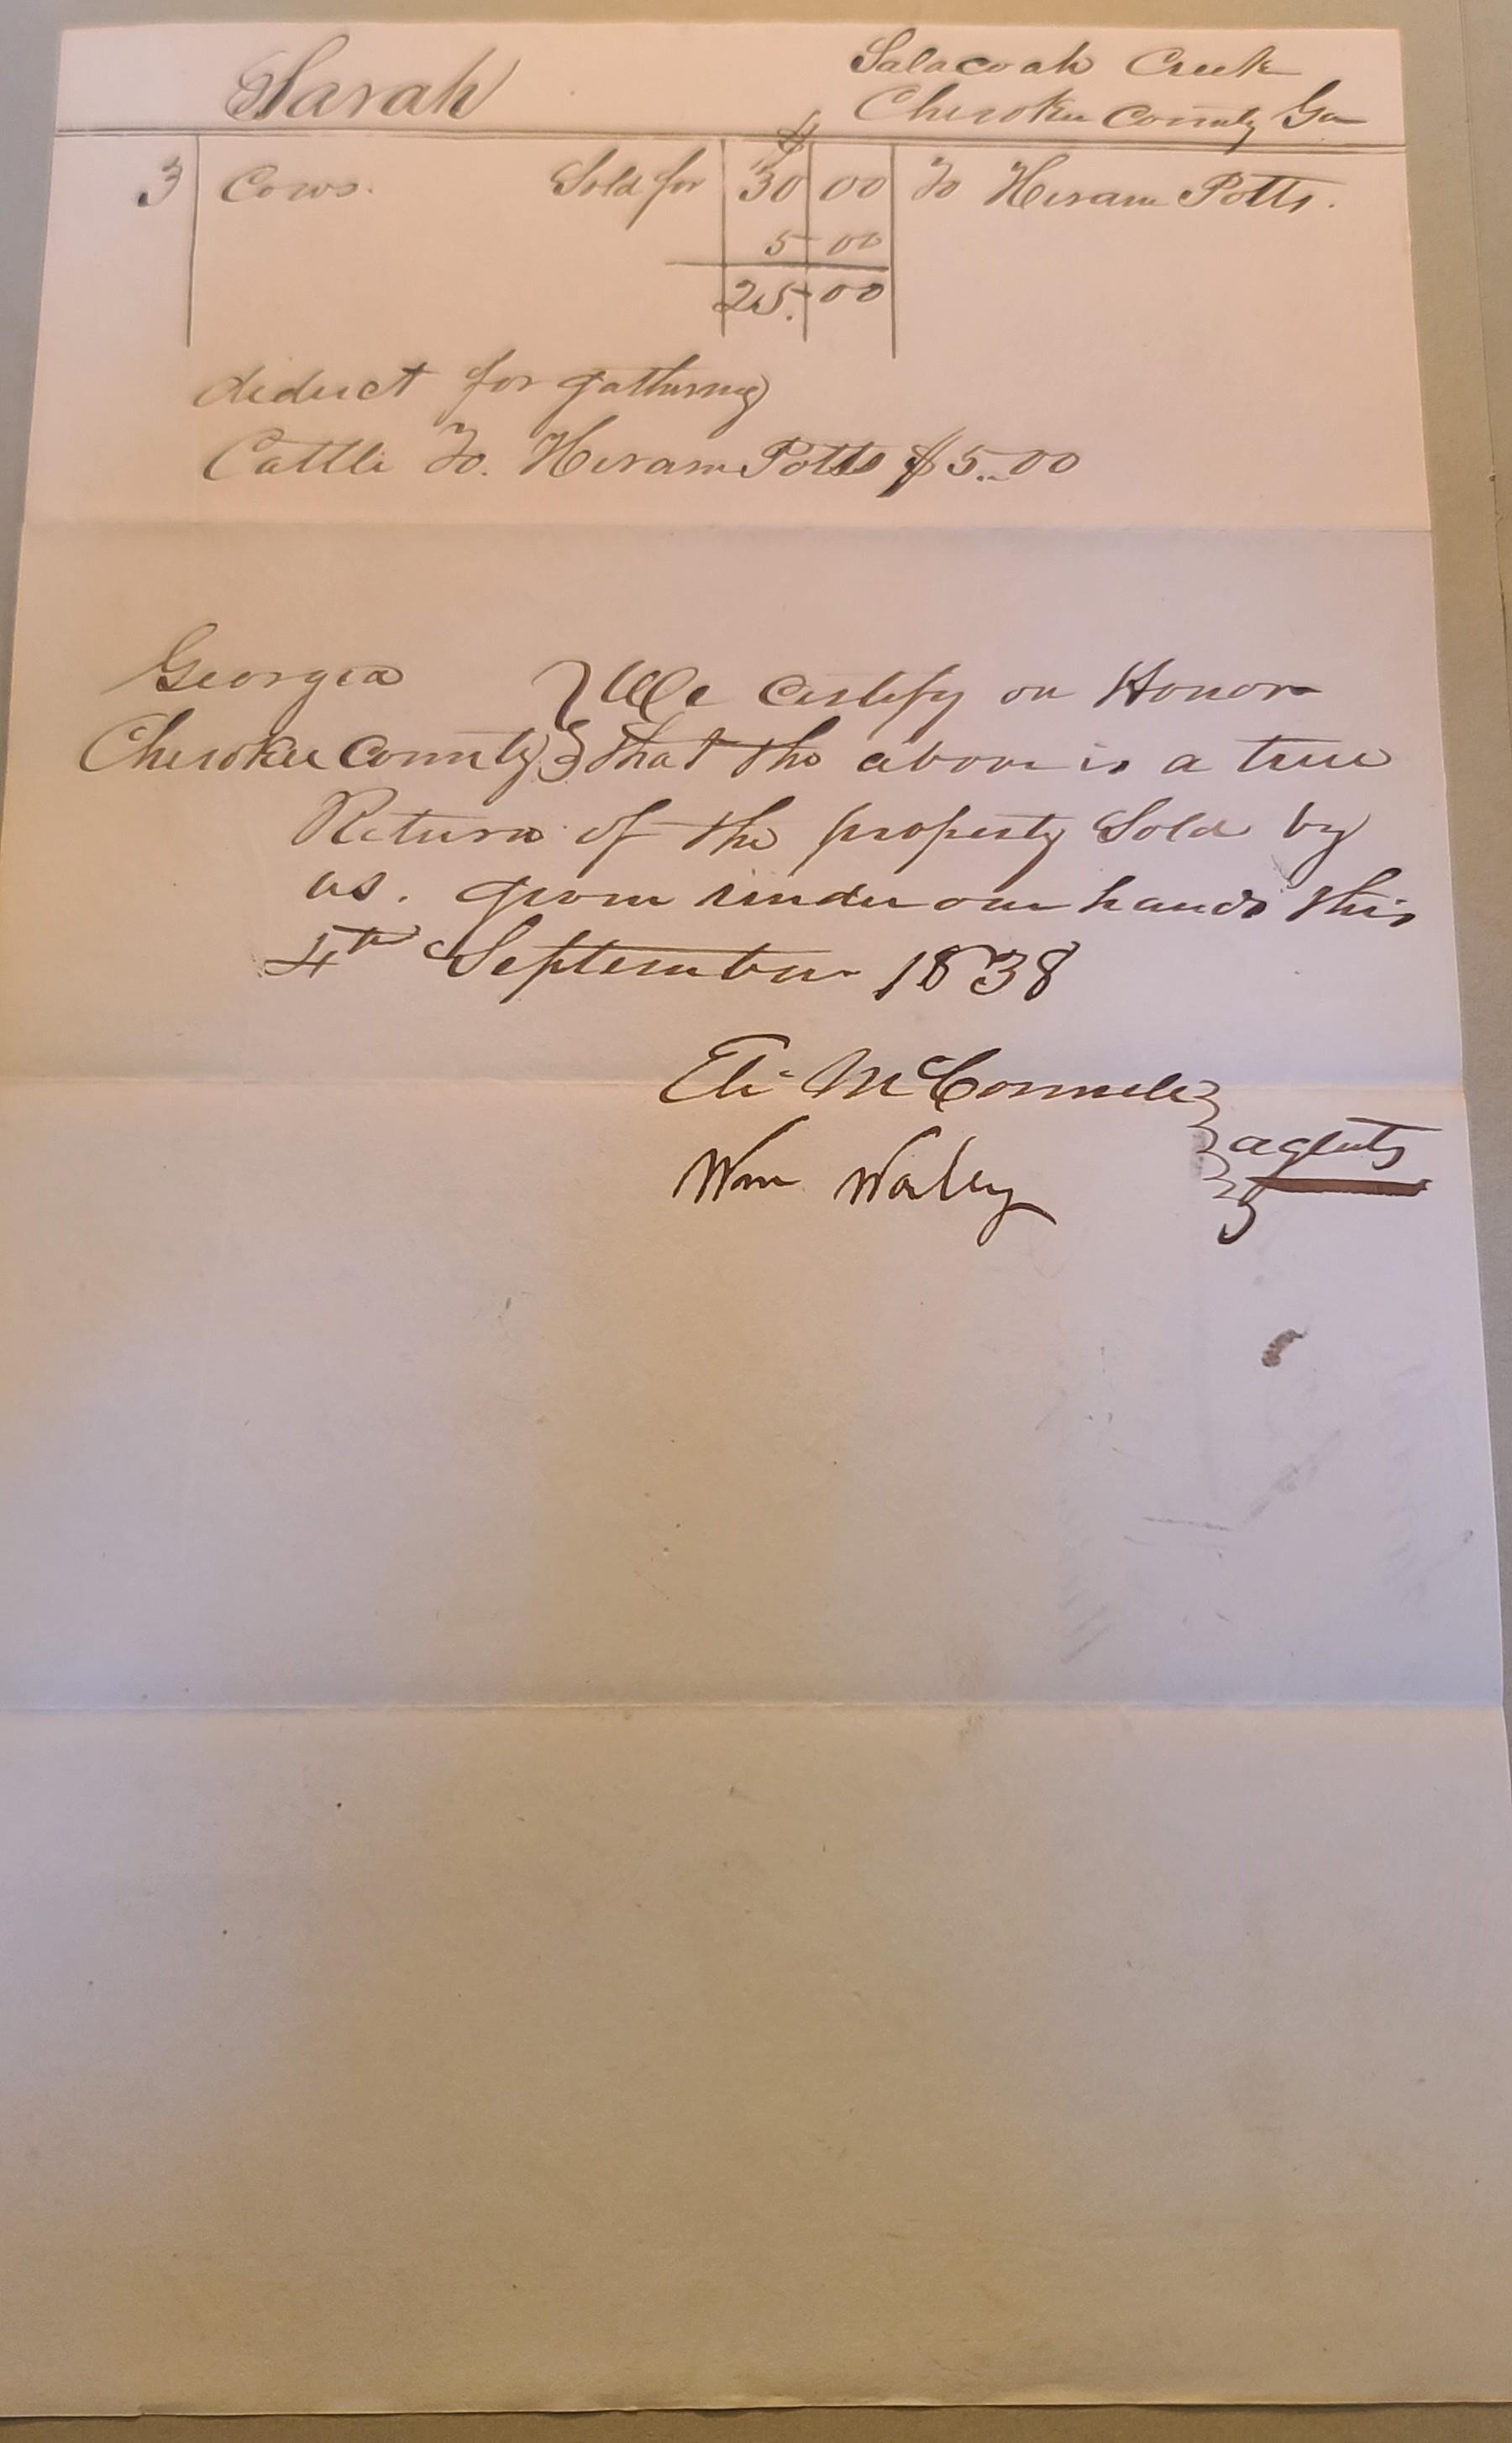 Sarah
Salacoah Creek
Cherokee County Ga
$
3 Cows. Sold for 30 00 To Hiram Potts.
5 00
25.00
deduct for gathering
Cattle To. Hiram Potts $5..00
Georgia } We Certify on Honor
Cherokee County } that the above is a true
Return of the property Sold by
us. given under our hands this
4th September 1838
Eli McConnell
Wm Worley
} agents